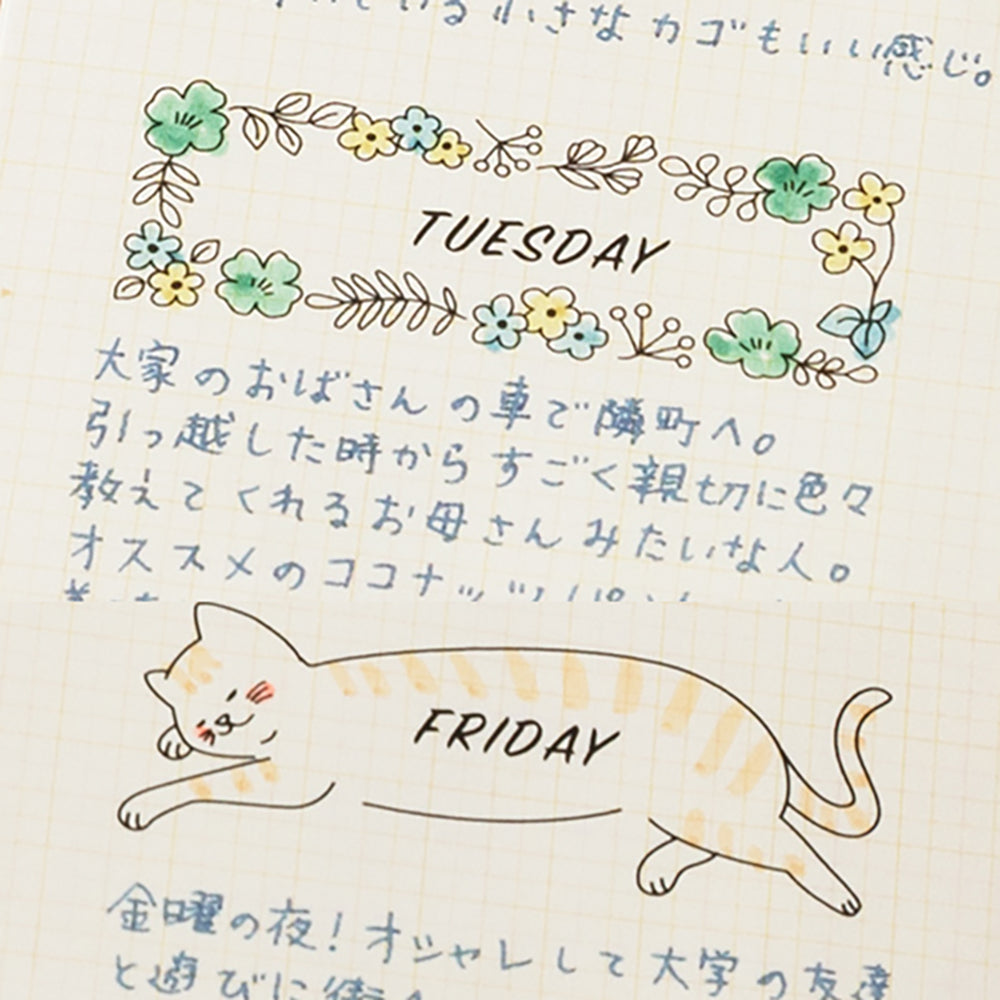 いる小さなカゴもいい感じ。
TUESDAY
大家のおばさんの車で隣町へ。
引っ越した時からすごく親切に色々
教えてくれるお母さんみたいな人。
オススメのココナッツパン
FRIDAY
金曜の夜！オシャレして大学の友達
と遊びに街へ